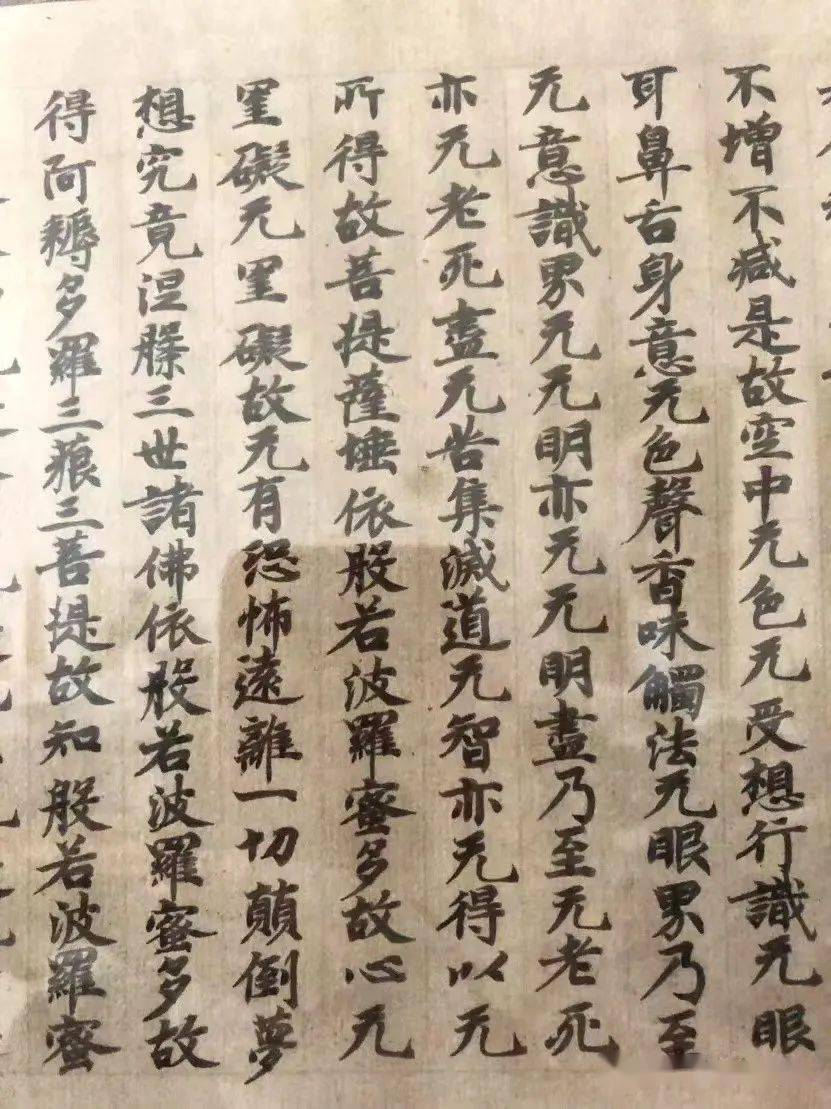 不增不減是故空中无色无受想行識无眼
耳鼻舌身意无色聲香味觸法无眼界乃至
无意識界无无明亦无无明盡乃至无老死
亦无老死盡无苦集滅道无智亦无得以无
所得故菩提薩埵依般若波羅蜜多故心无
罣礙无罣礙故无有恐怖遠離一切顛倒夢
想究竟涅槃三世諸佛依般若波羅蜜多故
得阿耨多羅三藐三菩提故知般若波羅蜜